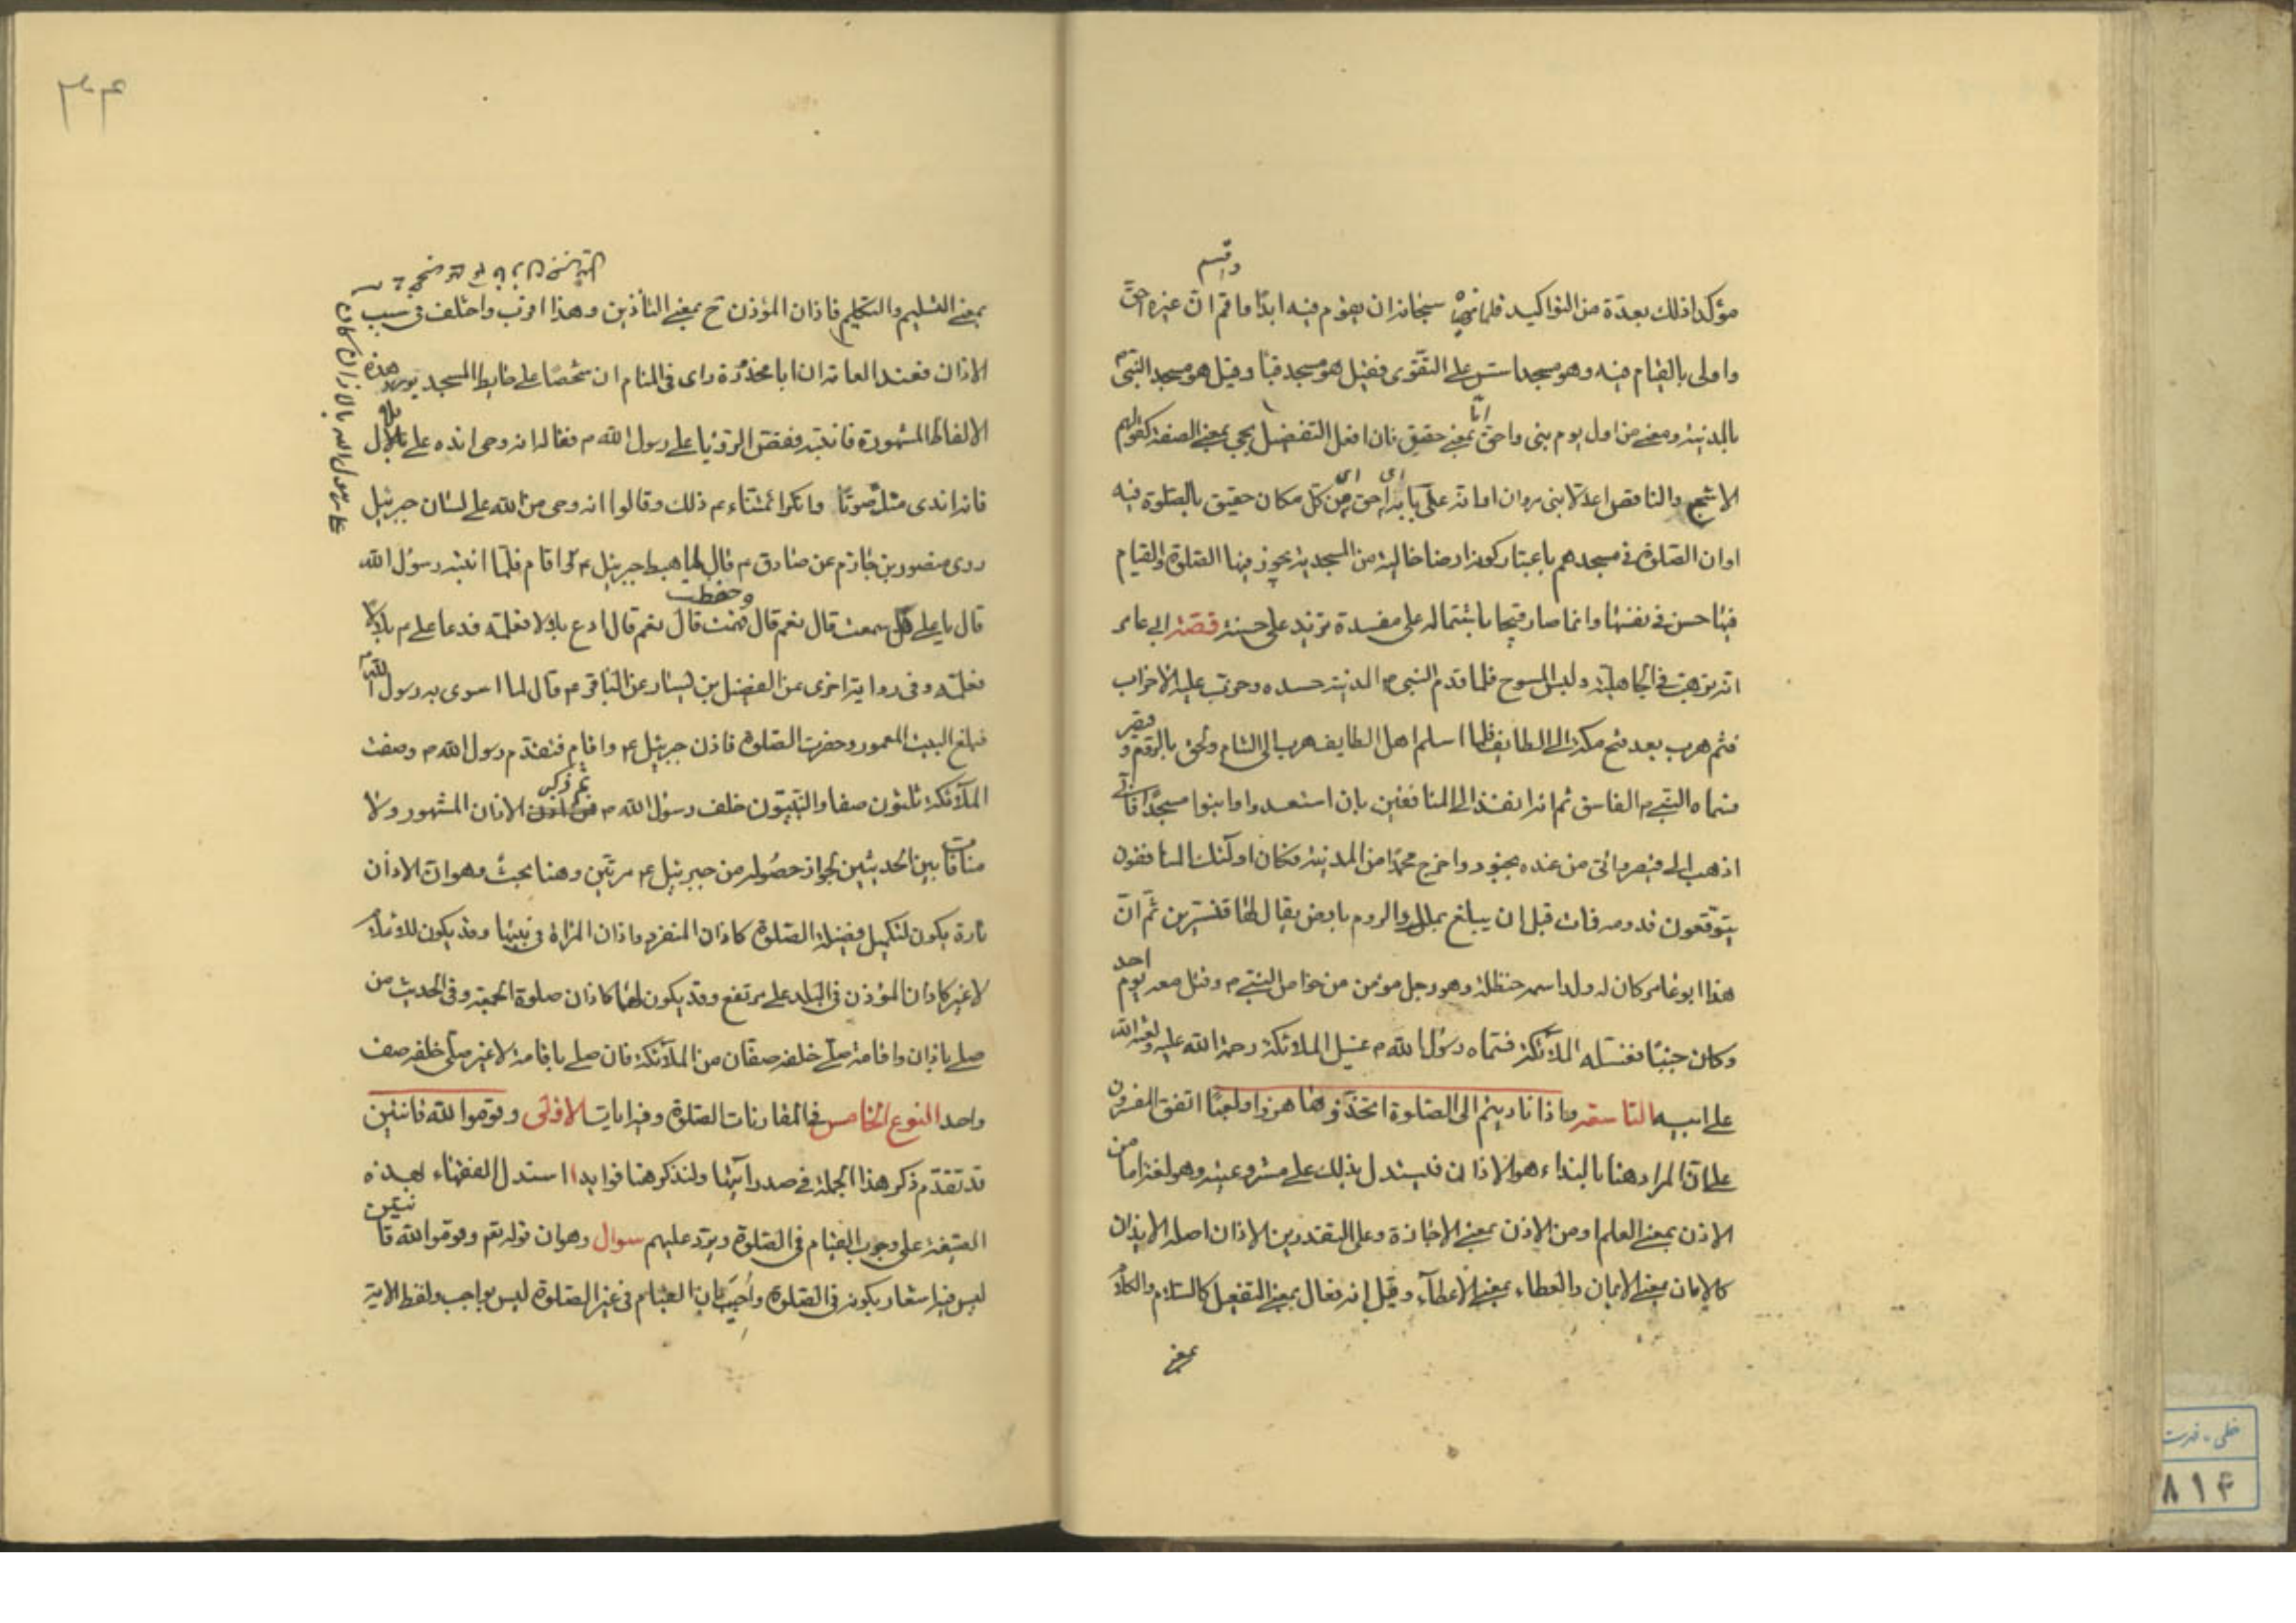 وقسم
مؤكدا ذلك بعدة من التواكيد فلما نهى سبحانه ان يقوم فيه ابدًا ما قم ان غيره احق
واولى بالقيام فيه وهو مسجد اسّس على التقوى فقيل هو مسجد قبا وقيل هو مسجد النبي م
بالمدينة ومعنى من اول يوم بنى واحق امّا بمعنى حقيق فان افعل التفضيل يجى بمعنى الصفة كقولهم
الاشج والناقص اعدلا بنى مروان او انه على بابه اى احق من كل مكان حقيق بالصلوة فيه
اوان الصلوة فى مسجدهم باعتبار كونه ارضا خالية من المسجدية يجوز فيها الصلوة والقيام
فيها حسن فى نفسها وانما صار قبيحا باشتماله على مفسدة تزيد على حسنه قصّة ابى عامر
انه ترهب فى الجاهلية ولبس المسوح فلما قدم النبى م المدينة حسده وحزب عليه الاحزاب
فثم هرب بعد فتح مكة الى الطايف فلما اسلم اهل الطايف هرب الى الشام ولحق بالروم و تنصر
فسماه النبى م الفاسق ثم انه انفذ الى المنافقين بان استعدوا وابنوا مسجدًا فانى
اذهب الى قيصر واتى من عنده بجنود واخرج محمدًا من المدينة فكان اولئك المنافقون
يتوقعون قدومه فمات قبل ان يبلغ ملك الروم بارض يقال لها قنسرين ثم انّ
هذا ابو عامر كان له ولد اسمه حنظلة وهو رجل مؤمن من خواص النبى م وقتل معه يوم احد
وكان جنبًا فغسّلته الملائكة فسمّاه رسول الله م غسيل الملائكة رحمة الله عليه ولعنة الله
على ابيه التاسعة واذا ناديتم الى الصلوة اتخذوها هزوا ولعبًا اتفق المفسرون
على انّ المراد هنا بالنداء هو الاذان فليستدل بذلك على مشروعيته وهو لغة اما من
الاذن بمعنى العلم او من الاذن بمعنى الاجازة وعلى التقديرين الاذان اصله الايذان
كالامان بمعنى الايمان والعطاء بمعنى الاعطآء وقيل انه فعال بمعنى التفعيل كالسلام والكلام
بمعنى
٣٤
بمعنى التسليم والتكليم فاذان المؤذن ح بمعنى التأذين وهذا اقرب واختلف فى سبب
الاذان فعند العامة ان ابا محذورة راى فى المنام ان شخصًا على حايط المسجد يورد هذه
الالفاظ المشهورة فانتبه فقصّ الرؤيا على رسول الله م فقال انه وحى انده على بلال
فانه اندى منك صوتًا وانكر ائمتناء م ذلك وقالوا انه وحى من الله على لسان جبرئيل
روى منصور بن حازم عن صادق م قال لما هبط جبرئيل م واقام فلمّا انتبه رسول الله
قال يا على هل سمعت قال نعم قال وحفظت قال نعم قال ادع بلالا فعلمه فدعا على م بلالًا
فعلمه وفى رواية اخرى عن الفضيل بن يسار عن الباقر م قال لما اسرى به رسول الله م
فبلغ البيت المعمور وحضرت الصلوة فاذن جبرئيل م واقام فتقدّم رسول الله م وصفت
الملآئكة ثلثون صفا والنبيّون خلف رسول الله م ثم ذكر الاذان المشهور ولا
منافات بين الحديثين لجواز حصوله من جبرئيل م مرتين وهنا بحث وهو انّ الاذان
تارة يكون لتكميل فضيلة الصلوة كاذان المنفرد واذان المراة فى بيتها وقد يكون للاعلام
لاغير كاذان المؤذن فى البلد على مرتفع وقد يكون لهما كاذان صلوة الجمعة وفى الحديث من
صلى باذان واقامة صلّى خلفه صفّان من الملآئكة فان صلى باقامة لاغير صلّى خلفه صف
واحد النوع الخامس فى مقارنات الصلوة وفيه ايات الاولى وقوموا لله قانتين
قد تقدّم ذكر هذا الجملة فى صدر آيتها ولنذكر هنا فوايد ا استدل الفقهاء بهذه
الصيغة على وجوب القيام فى الصلوة ويرد عليهم سوال وهو ان قوله تعم وقوموا لله قانتين
ليس فيه اشعار بكونه فى الصلوة واُجيبَ بانّ القيام فى غير الصلوة ليس بواجب ولفظ الاية
خطى - فهرست
٨١۴